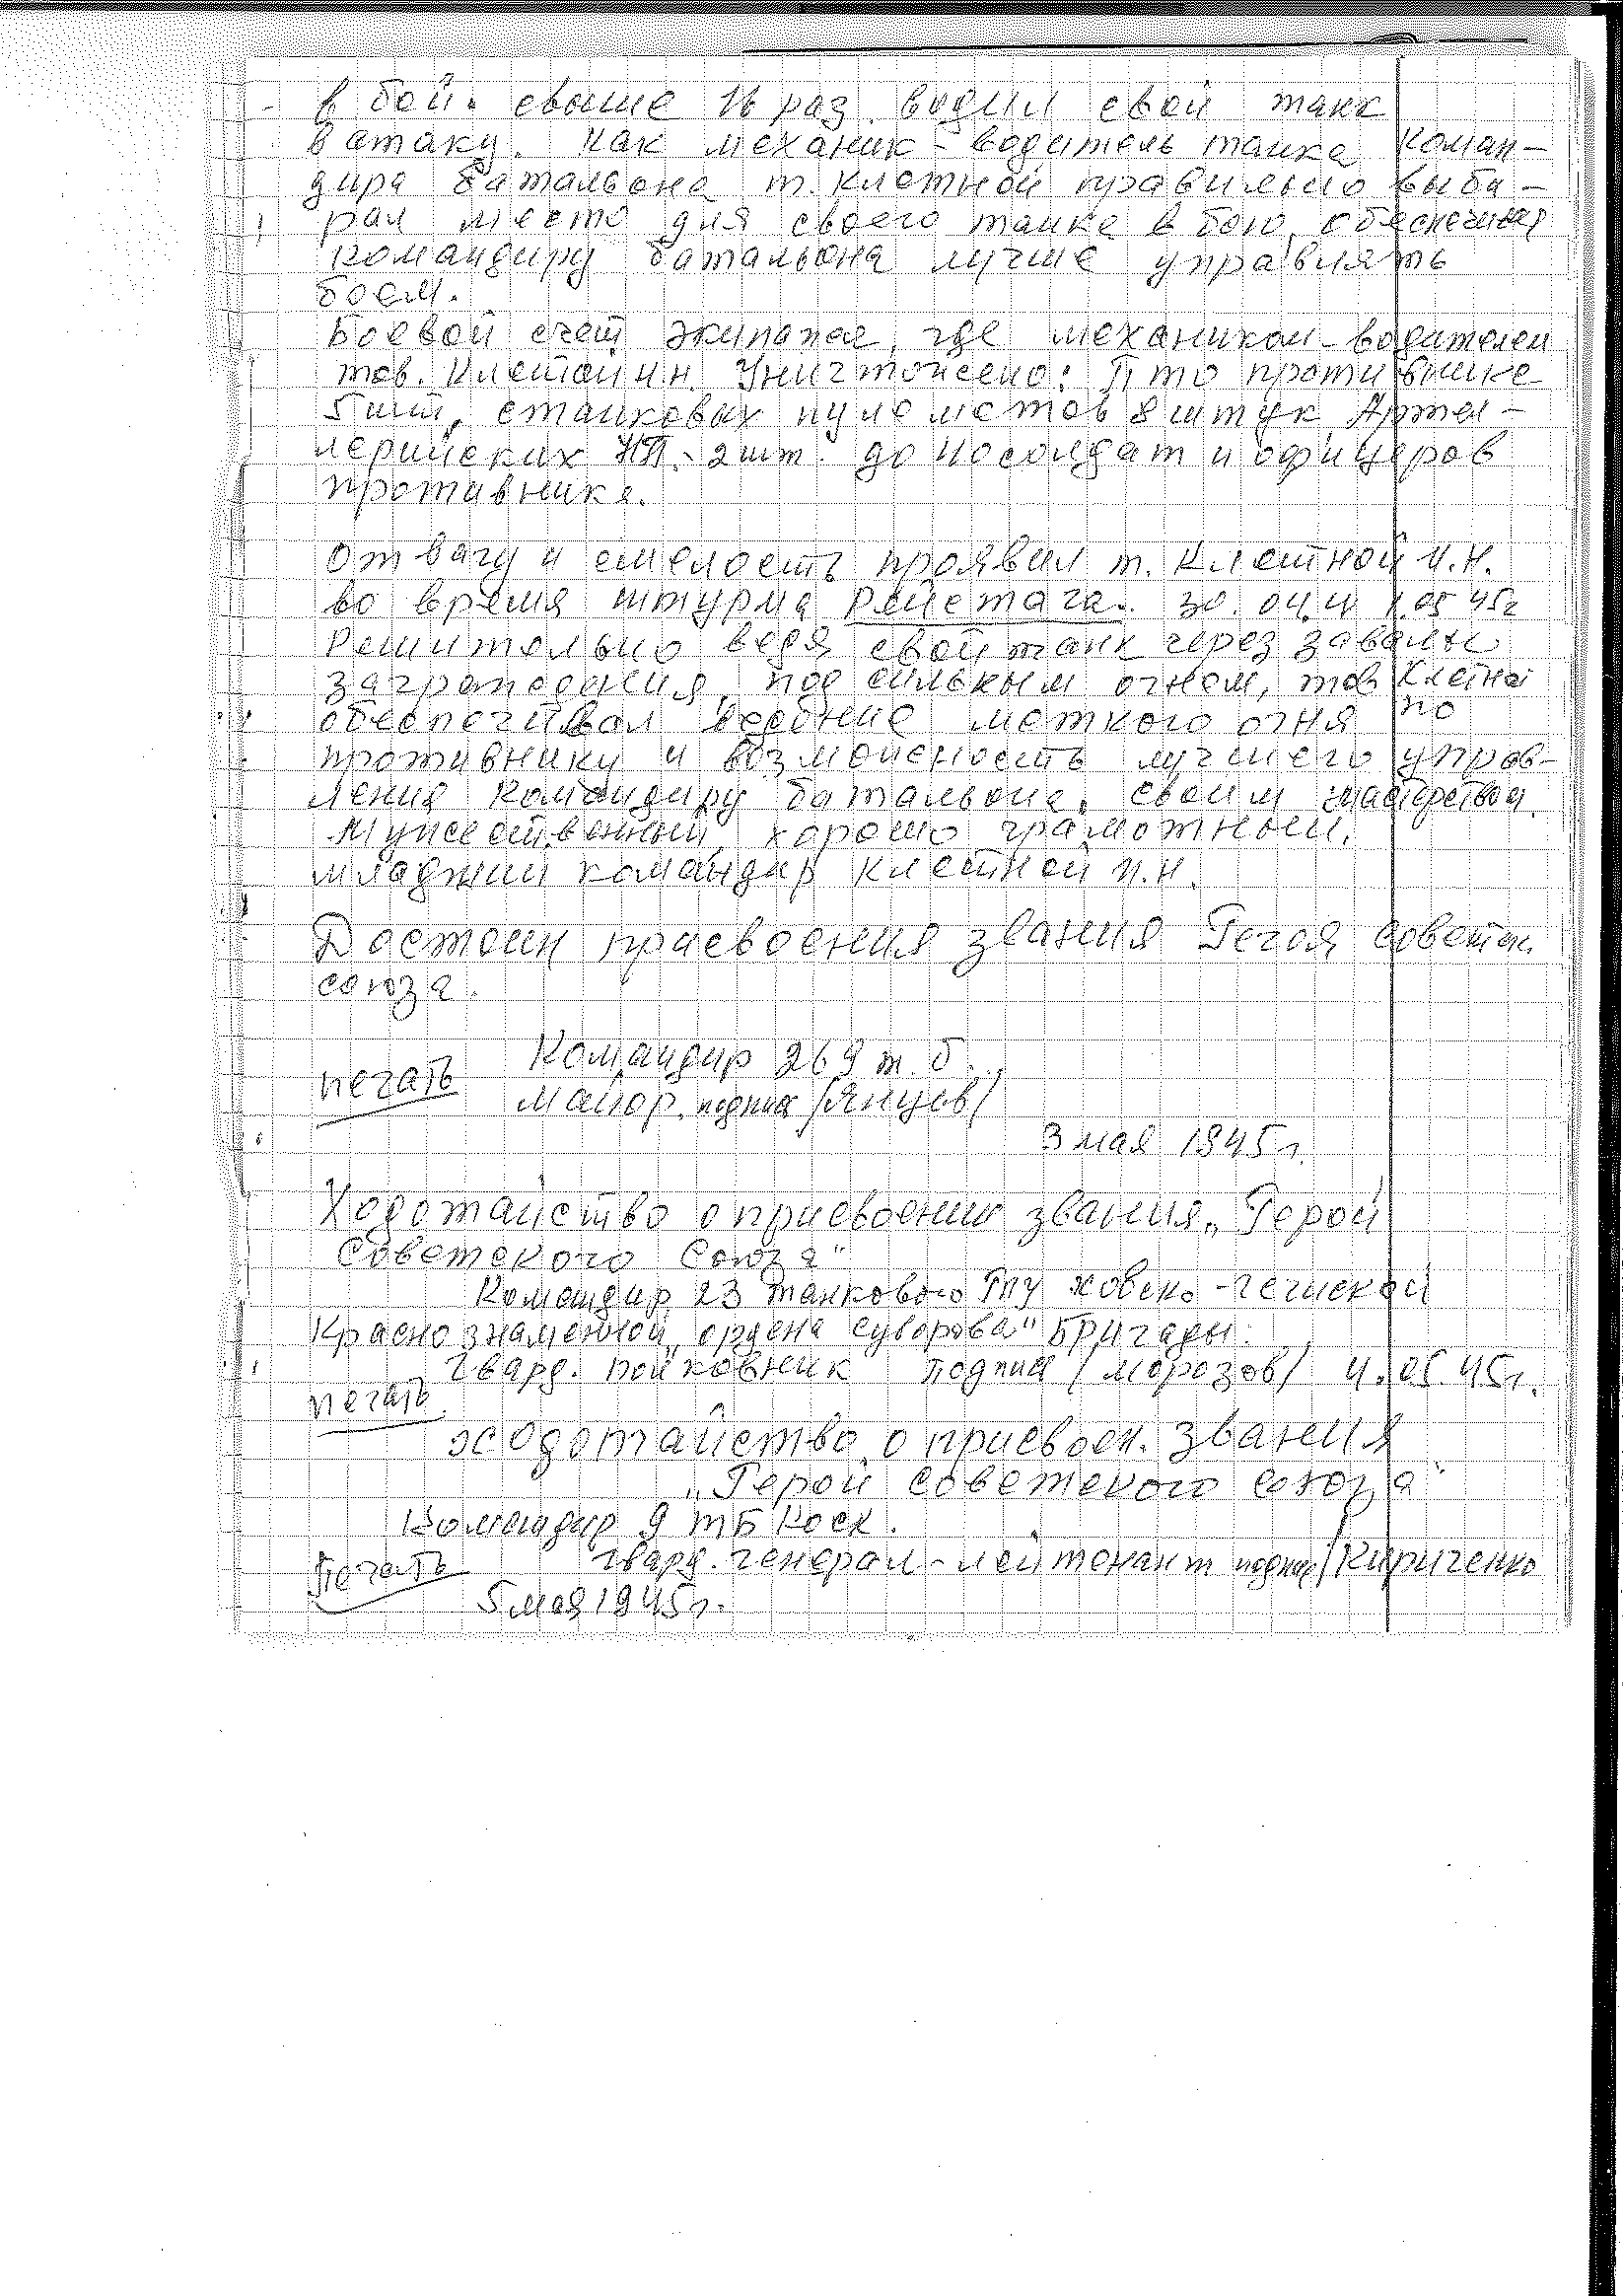 в бой. свыше 16 раз водил свой танк
в атаку. Как механик-водитель танка коман-
дира батальона т. Клетной правильно выби-
рал место для своего танка в бою, обеспечивая
командиру батальона лучше управлять
боем.
Боевой счет экипажа, где механиком-водителем
тов. Клетной И.Н. Уничтожено: ПТО противника
5 шт, станковых пулеметов 8 штук Артел-
лерийских НП - 2 шт. до солдат и офицеров
противника.
отвагу и смелость проявил т. Клетной И.Н.
во время штурма Рейстага. 30.04 и 1.05 45г
Решительно ведя свой танк через завалы
заграждения, под сильным огнем, тов Клетной
обеспечивал ведение меткого огня по
противнику и возможность лучшего управ-
ления командиру батальона, своим мастерством.
Мужественный, хорошо грамотный,
младший командир Клетной И.Н.
Достоин присвоения звания Героя советск.
союза.
Командир 269 т.б.
печать майор. подпись /Янцев/
3 мая 1945г.
Ходотайство о присвоении звания „Герой
Советского Союза"
Командир 23 танковой Глуховско-Речицкой
Краснознаменной „ордена Суворова" Бригады.
Гвард. полковник подпись /Морозов/ 4.05.45г.
печать
ходотайство о присвоен. звания
„Герой советского союза"
Командир 9 ТБ Коск.
печать гвард. генерал-лейтенант подпись/Кириченко
5 мая 1945г.